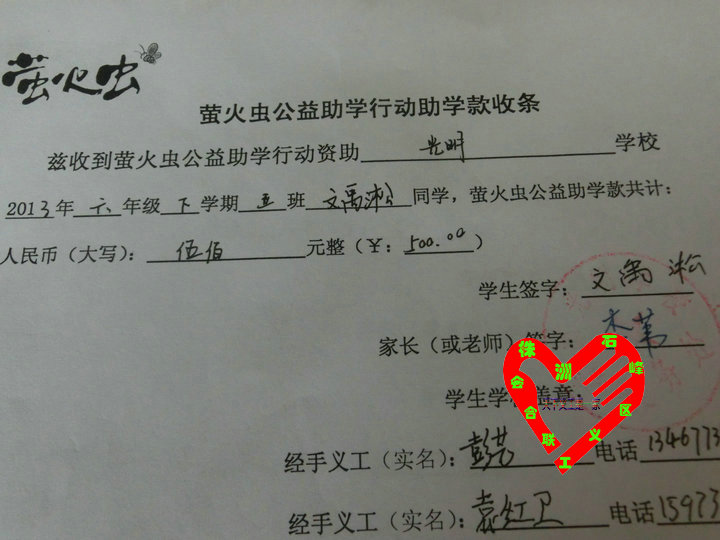 萤火虫
萤火虫公益助学行动助学款收条
兹收到萤火虫公益助学行动资助 光明 学校
2013年 六 年级 下 学期 五 班 文禹淞 同学，萤火虫公益助学款共计：
人民币（大写）： 伍佰 元整（￥： 500.00 ）
学生签字： 文禹淞
家长（或老师）签字：
学生学 盖章：
株洲石峰区义工联合会
经手义工（实名）： 电话 1346773
经手义工（实名）： 袁红卫 电话 15973